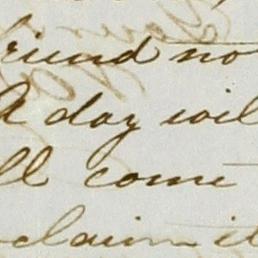 riend no
A day wil
ll come
claim it